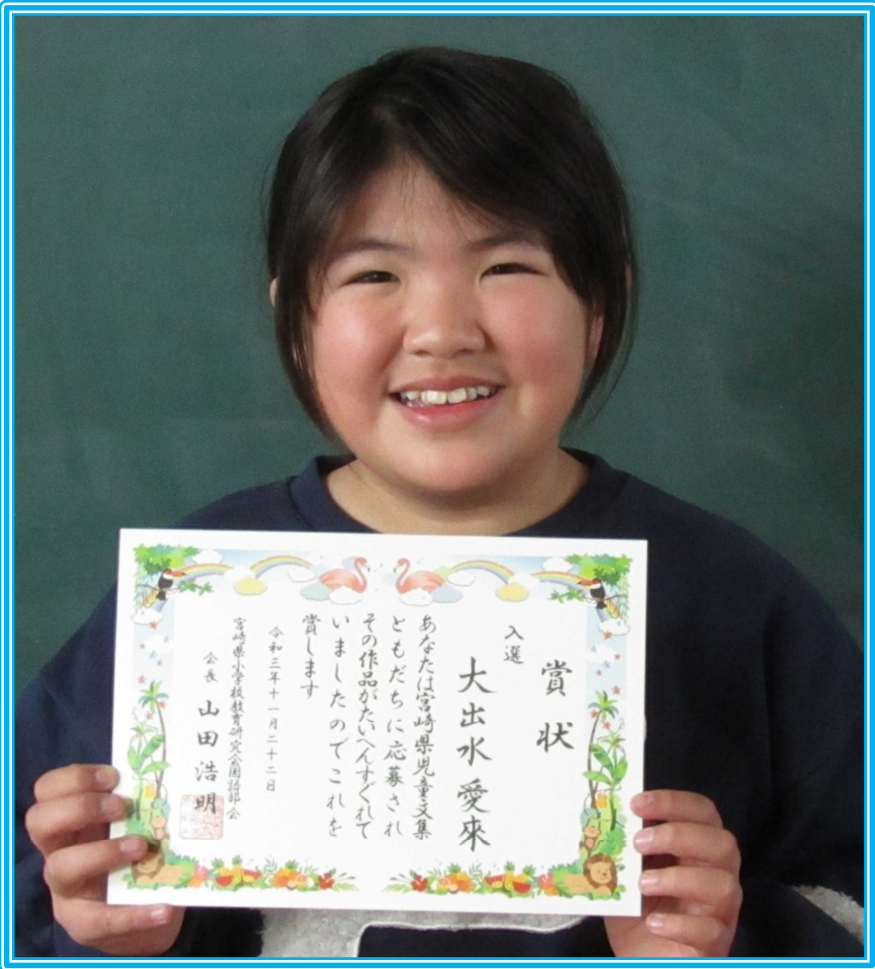 賞状
入選
大出水 愛來
あなたは宮崎県児童文集
ともだちに応募され
その作品がたいへんすぐれて
いましたのでこれを
賞します
令和三年十一月二十二日
宮崎県小学校教育研究会国語部会
会長 山田浩明